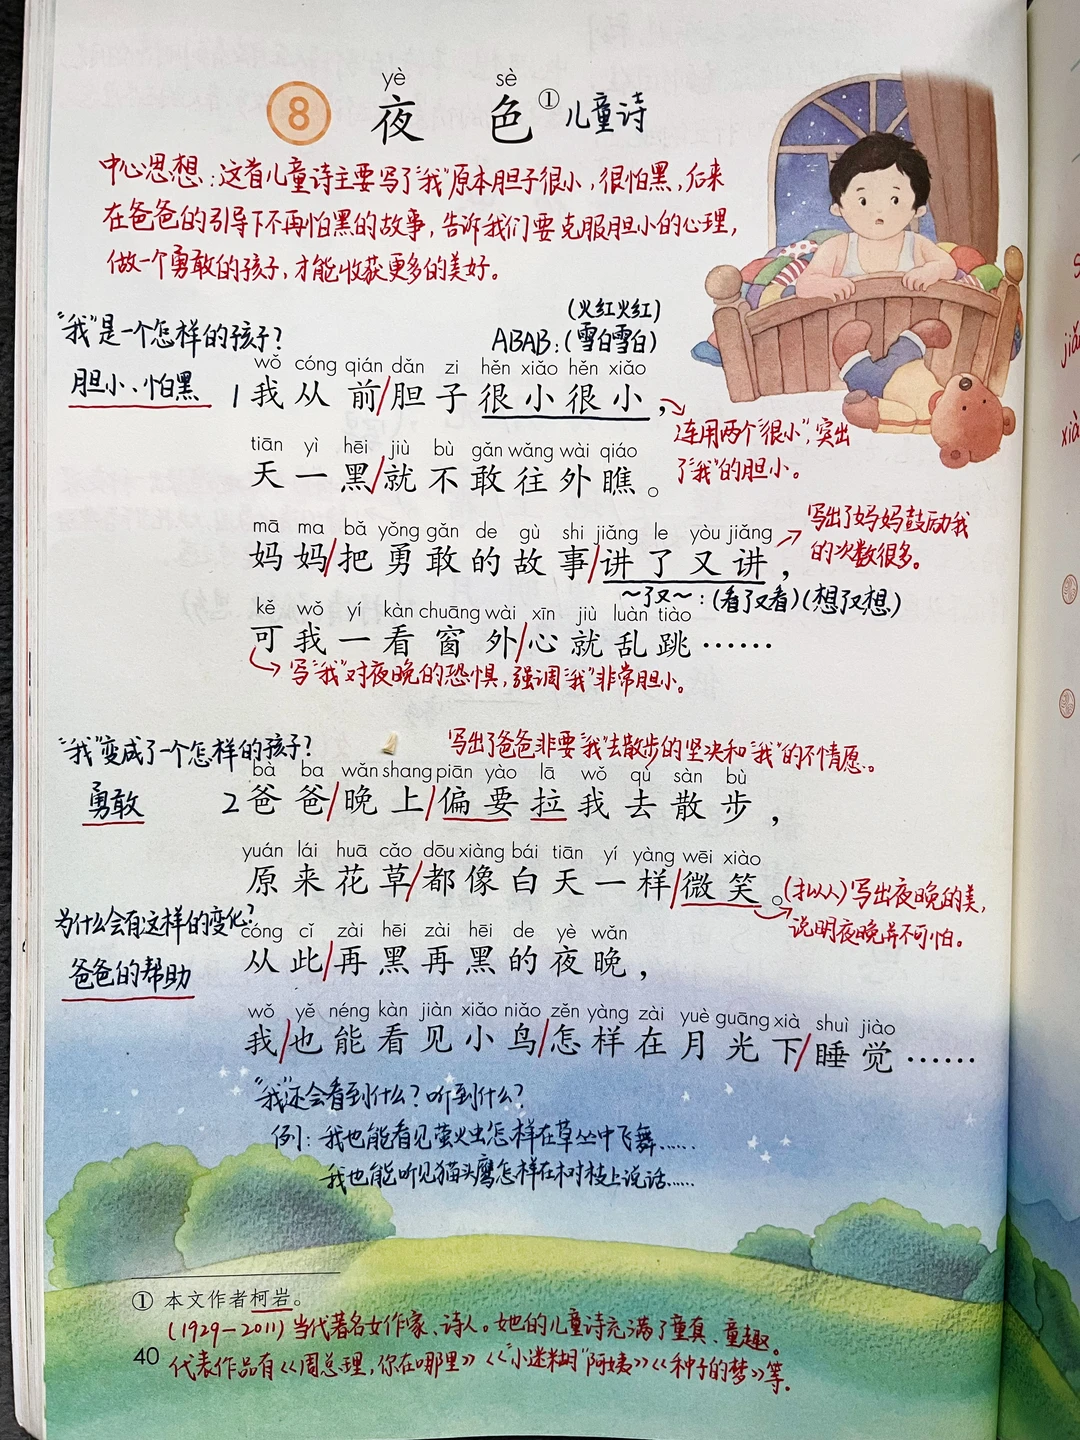 yè sè
8 夜 色 ① 儿童诗
中心思想：这首儿童诗主要写了“我”原本胆子很小，很怕黑，后来
在爸爸的引导下不再怕黑的故事，告诉我们要克服胆小的心理，
做一个勇敢的孩子，才能收获更多的美好。
“我”是一个怎样的孩子？
胆小、怕黑
(火红火红)
ABAB：(雪白雪白)
wǒ cóng qián dǎn zi hěn xiǎo hěn xiǎo
1 我从前/胆子很小很小，
连用两个“很小”，突出
了“我”的胆小。
tiān yì hēi jiù bù gǎn wǎng wài qiáo
天一黑/就不敢往外瞧。
写出了妈妈鼓励我
的次数很多。
mā ma bǎ yǒng gǎn de gù shi jiǎng le yòu jiǎng
妈妈/把勇敢的故事/讲了又讲，
～了又～：(看了又看)(想了又想)
kě wǒ yí kàn chuāng wài xīn jiù luàn tiào
可我一看窗外/心就乱跳……
写“我”对夜晚的恐惧，强调“我”非常胆小。
“我”变成了一个怎样的孩子？
勇敢
写出了爸爸非要“我”去散步的坚决和“我”的不情愿。
bà ba wǎn shang piān yào lā wǒ qù sàn bù
2 爸爸/晚上/偏要拉我去散步，
yuán lái huā cǎo dōu xiàng bái tiān yí yàng wēi xiào
原来花草/都像白天一样/微笑。
(拟人)写出夜晚的美，
说明夜晚并不可怕。
为什么会有这样的变化？
爸爸的帮助
cóng cǐ zài hēi zài hēi de yè wǎn
从此/再黑再黑的夜晚，
wǒ yě néng kàn jiàn xiǎo niǎo zěn yàng zài yuè guāng xià shuì jiào
我/也能看见小鸟/怎样在月光下/睡觉……
“我”还会看到什么？听到什么？
例：我也能看见萤火虫怎样在草丛中飞舞……
我也能听见猫头鹰怎样在树枝上说话……
① 本文作者柯岩。
(1929—2011)当代著名女作家、诗人。她的儿童诗充满了童真、童趣。
代表作品有《周总理，你在哪里》《“小迷糊”阿姨》《种子的梦》等。
40